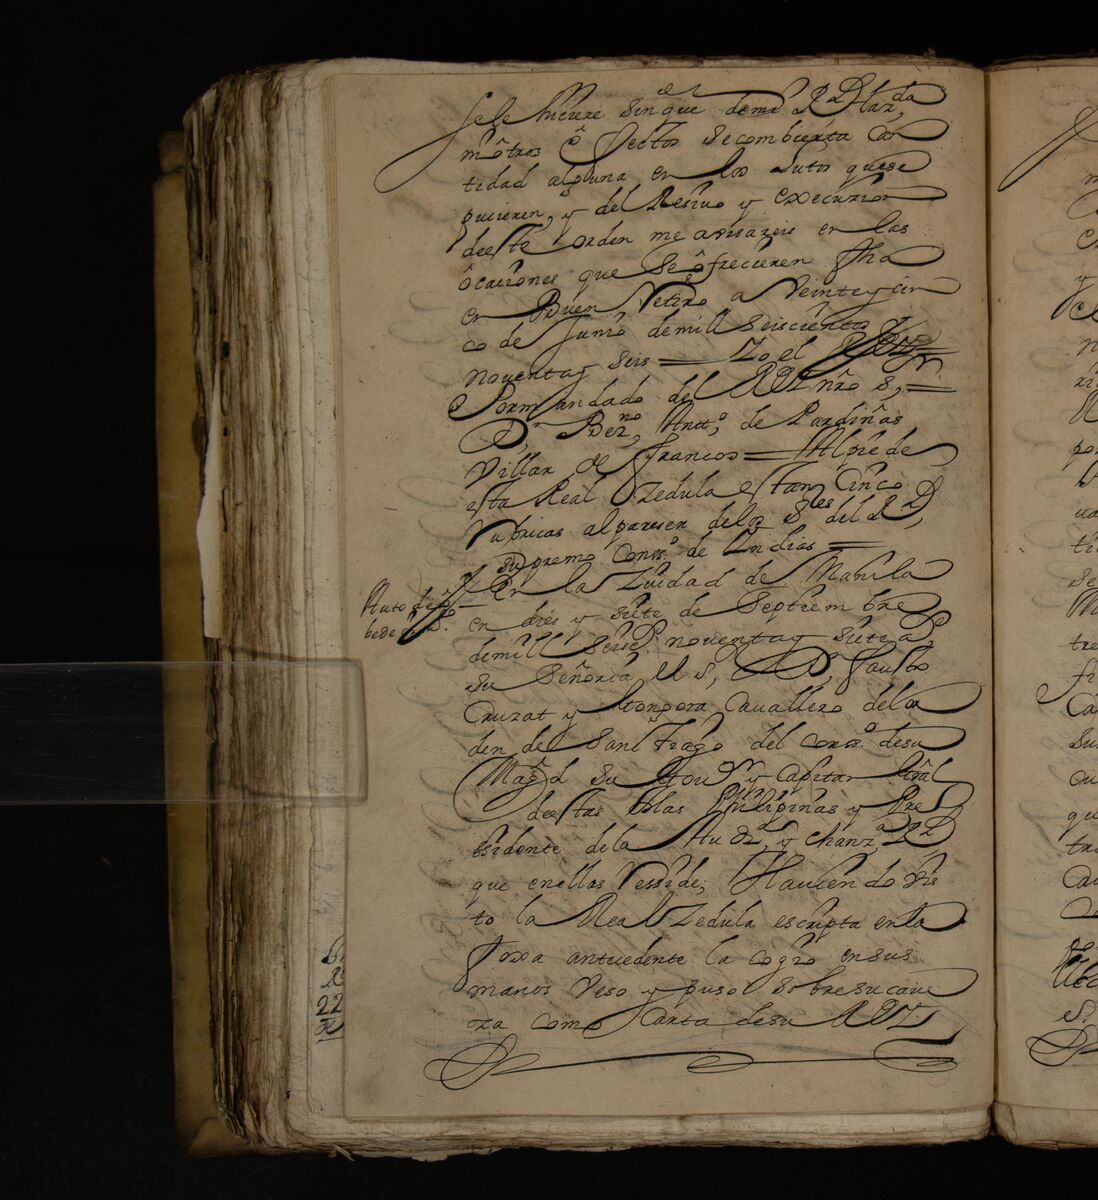 se le hiciere sin que de mi Rl Haz.da
ni ôtros êfectos se combierta can
tidad alguna en los autos que se
hicieren, y del Resivo y execucion
de este orden me avisareis en las
ôcaciones que se ôfrecieren fha
en Buen Retiro a Veinte y cin
co de Junio de mill seiscientos
noventa y seis = Yo el Rey =
Por mandado del Rey nro s, =
Dn Berno, Antto, de Pardiñas
Villar de Francos = Al pie de
esta Real Zedula estan Cinco
rubricas al pareser de los S.res del Rl
supremo Conss.o de Indias =
Auto de o
bedesim.to
En la Ziudad de Manila
en dies y siete de Septiembre
de mill seisc.s noventa y siete a.s
su Señoria el S, Dn, Fausto
Cruzat y Gongora Cavallero del or
den de Santtiago del conss.o de su
Mag.d su Gov.or y Capitan Gral
de estas Islas Philipinas y Pre
ssidente de la Aud.a, y chanz.a Rl
que en ellas Resside, Haviendo vis
to la Real Zedula escripta en la
foxa antecedente la cogio en sus
manos veso y puso sobre su cave
za como Carta de su Rey